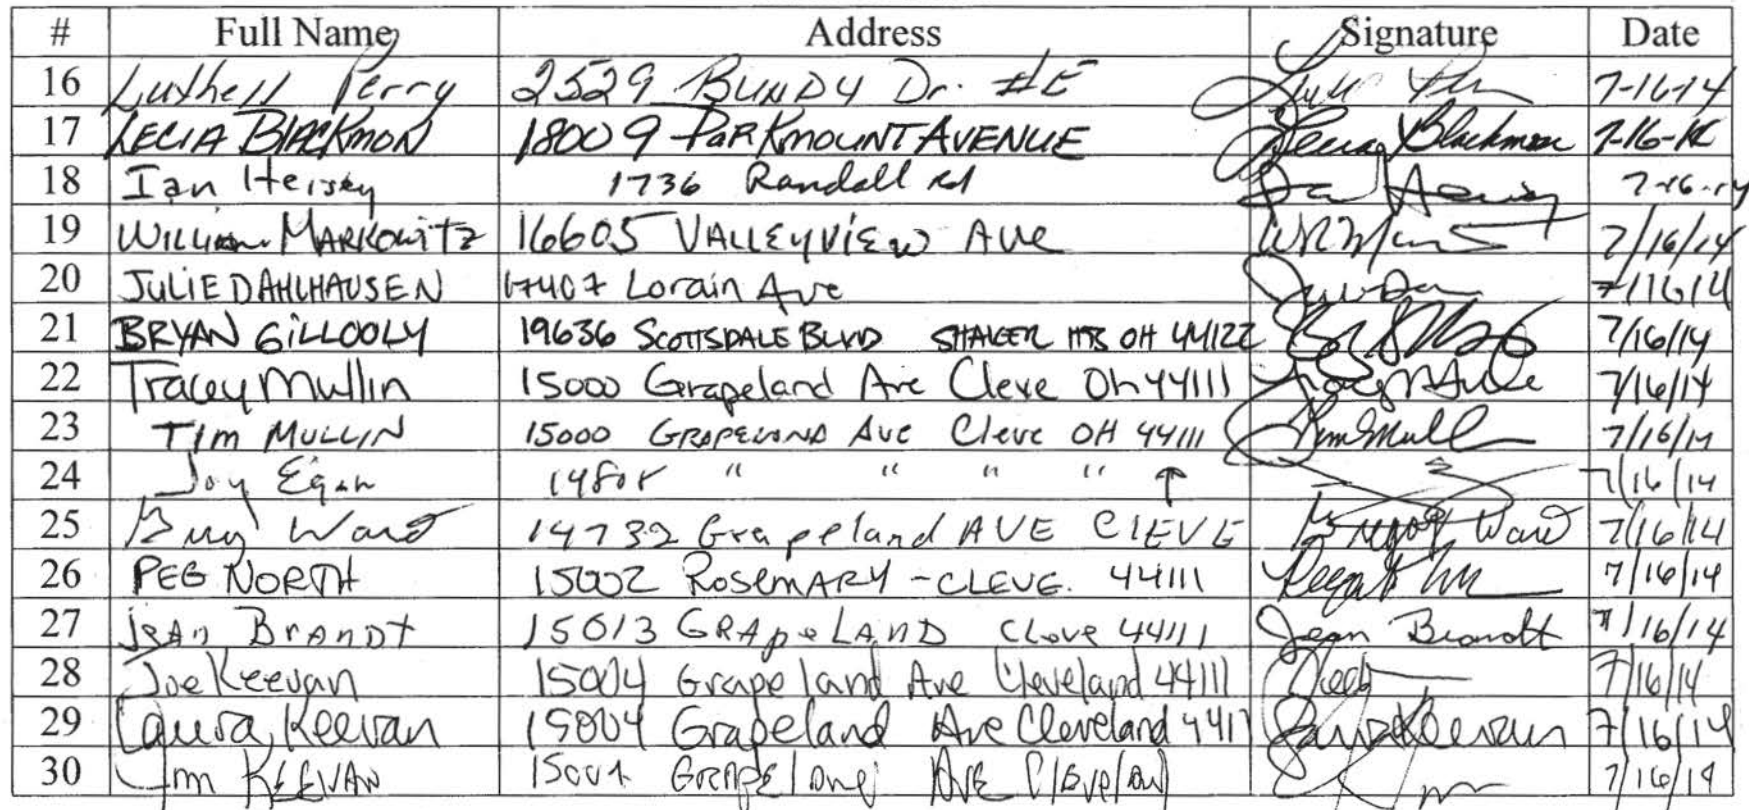 # Full Name Address Signature Date
16 Luthell Perry 2529 BUNDY Dr. #E 7-16-14
17 LECIA BLACKMON 18009 PARKMOUNT AVENUE Lecia Blackmon 7-16-14
18 Ian Hersey 1736 Randall rd 7-16-14
19 WILLIAM MARKOWITZ 16605 VALLEYVIEW AVE 7/16/14
20 JULIE DAHLHAUSEN 17407 Lorain Ave 7/16/14
21 BRYAN GILLOOLY 19636 SCOTTSDALE BLVD SHAKER HTS OH 44122 7/16/14
22 Tracey Mullin 15000 Grapeland Ave Cleve Oh 44111 7/16/14
23 TIM MULLIN 15000 GRAPELAND Ave Cleve OH 44111 Tim Mull 7/16/14
24 Joy Egan " " " " ↑ 7/16/14
25 Ward 14732 Grapeland AVE CLEVE Gregory Ward 7/16/14
26 PEG NORTH 15002 ROSEMARY - CLEVE. 44111 7/16/14
27 Jean Brandt 15013 GRApeLAND Cleve 44111 Jean Brandt 7/16/14
28 Joe Keevan 15004 Grapeland Ave Cleveland 44111 7/16/14
29 Laura Keevan 15004 Grapeland Ave Cleveland 4411 Laura Keevan 7/16/14
30 Jim KEEVAN GRAPELand AVE Cleveland 7/16/14